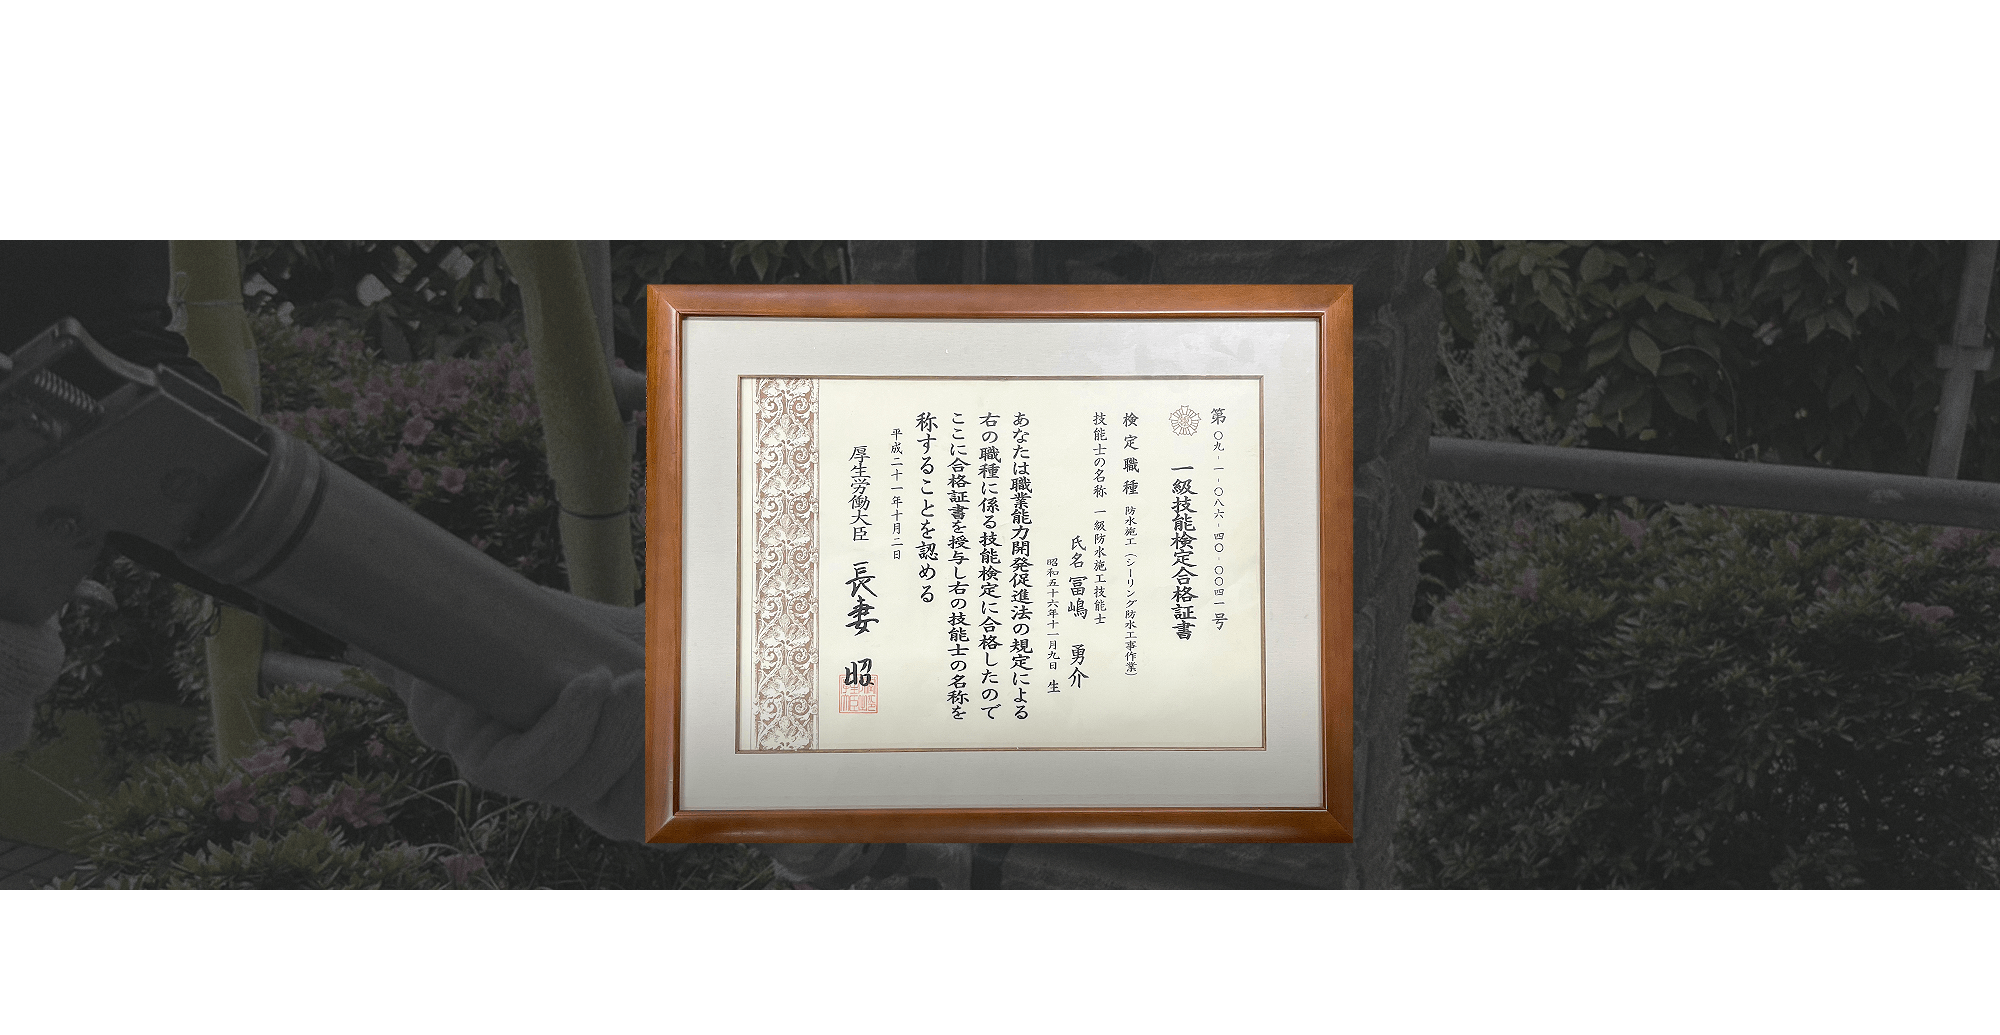 第〇九-一-〇八六-四〇-〇〇四一号
一級技能検定合格証書
検定職種 防水施工(シーリング防水工事作業)
技能士の名称 一級防水施工技能士
氏名 冨嶋 勇介
昭和五十六年十一月九日 生
あなたは職業能力開発促進法の規定による
右の職種に係る技能検定に合格したので
ここに合格証書を授与し右の技能士の名称を
称することを認める
平成二十一年十月二日
厚生労働大臣 長妻 昭